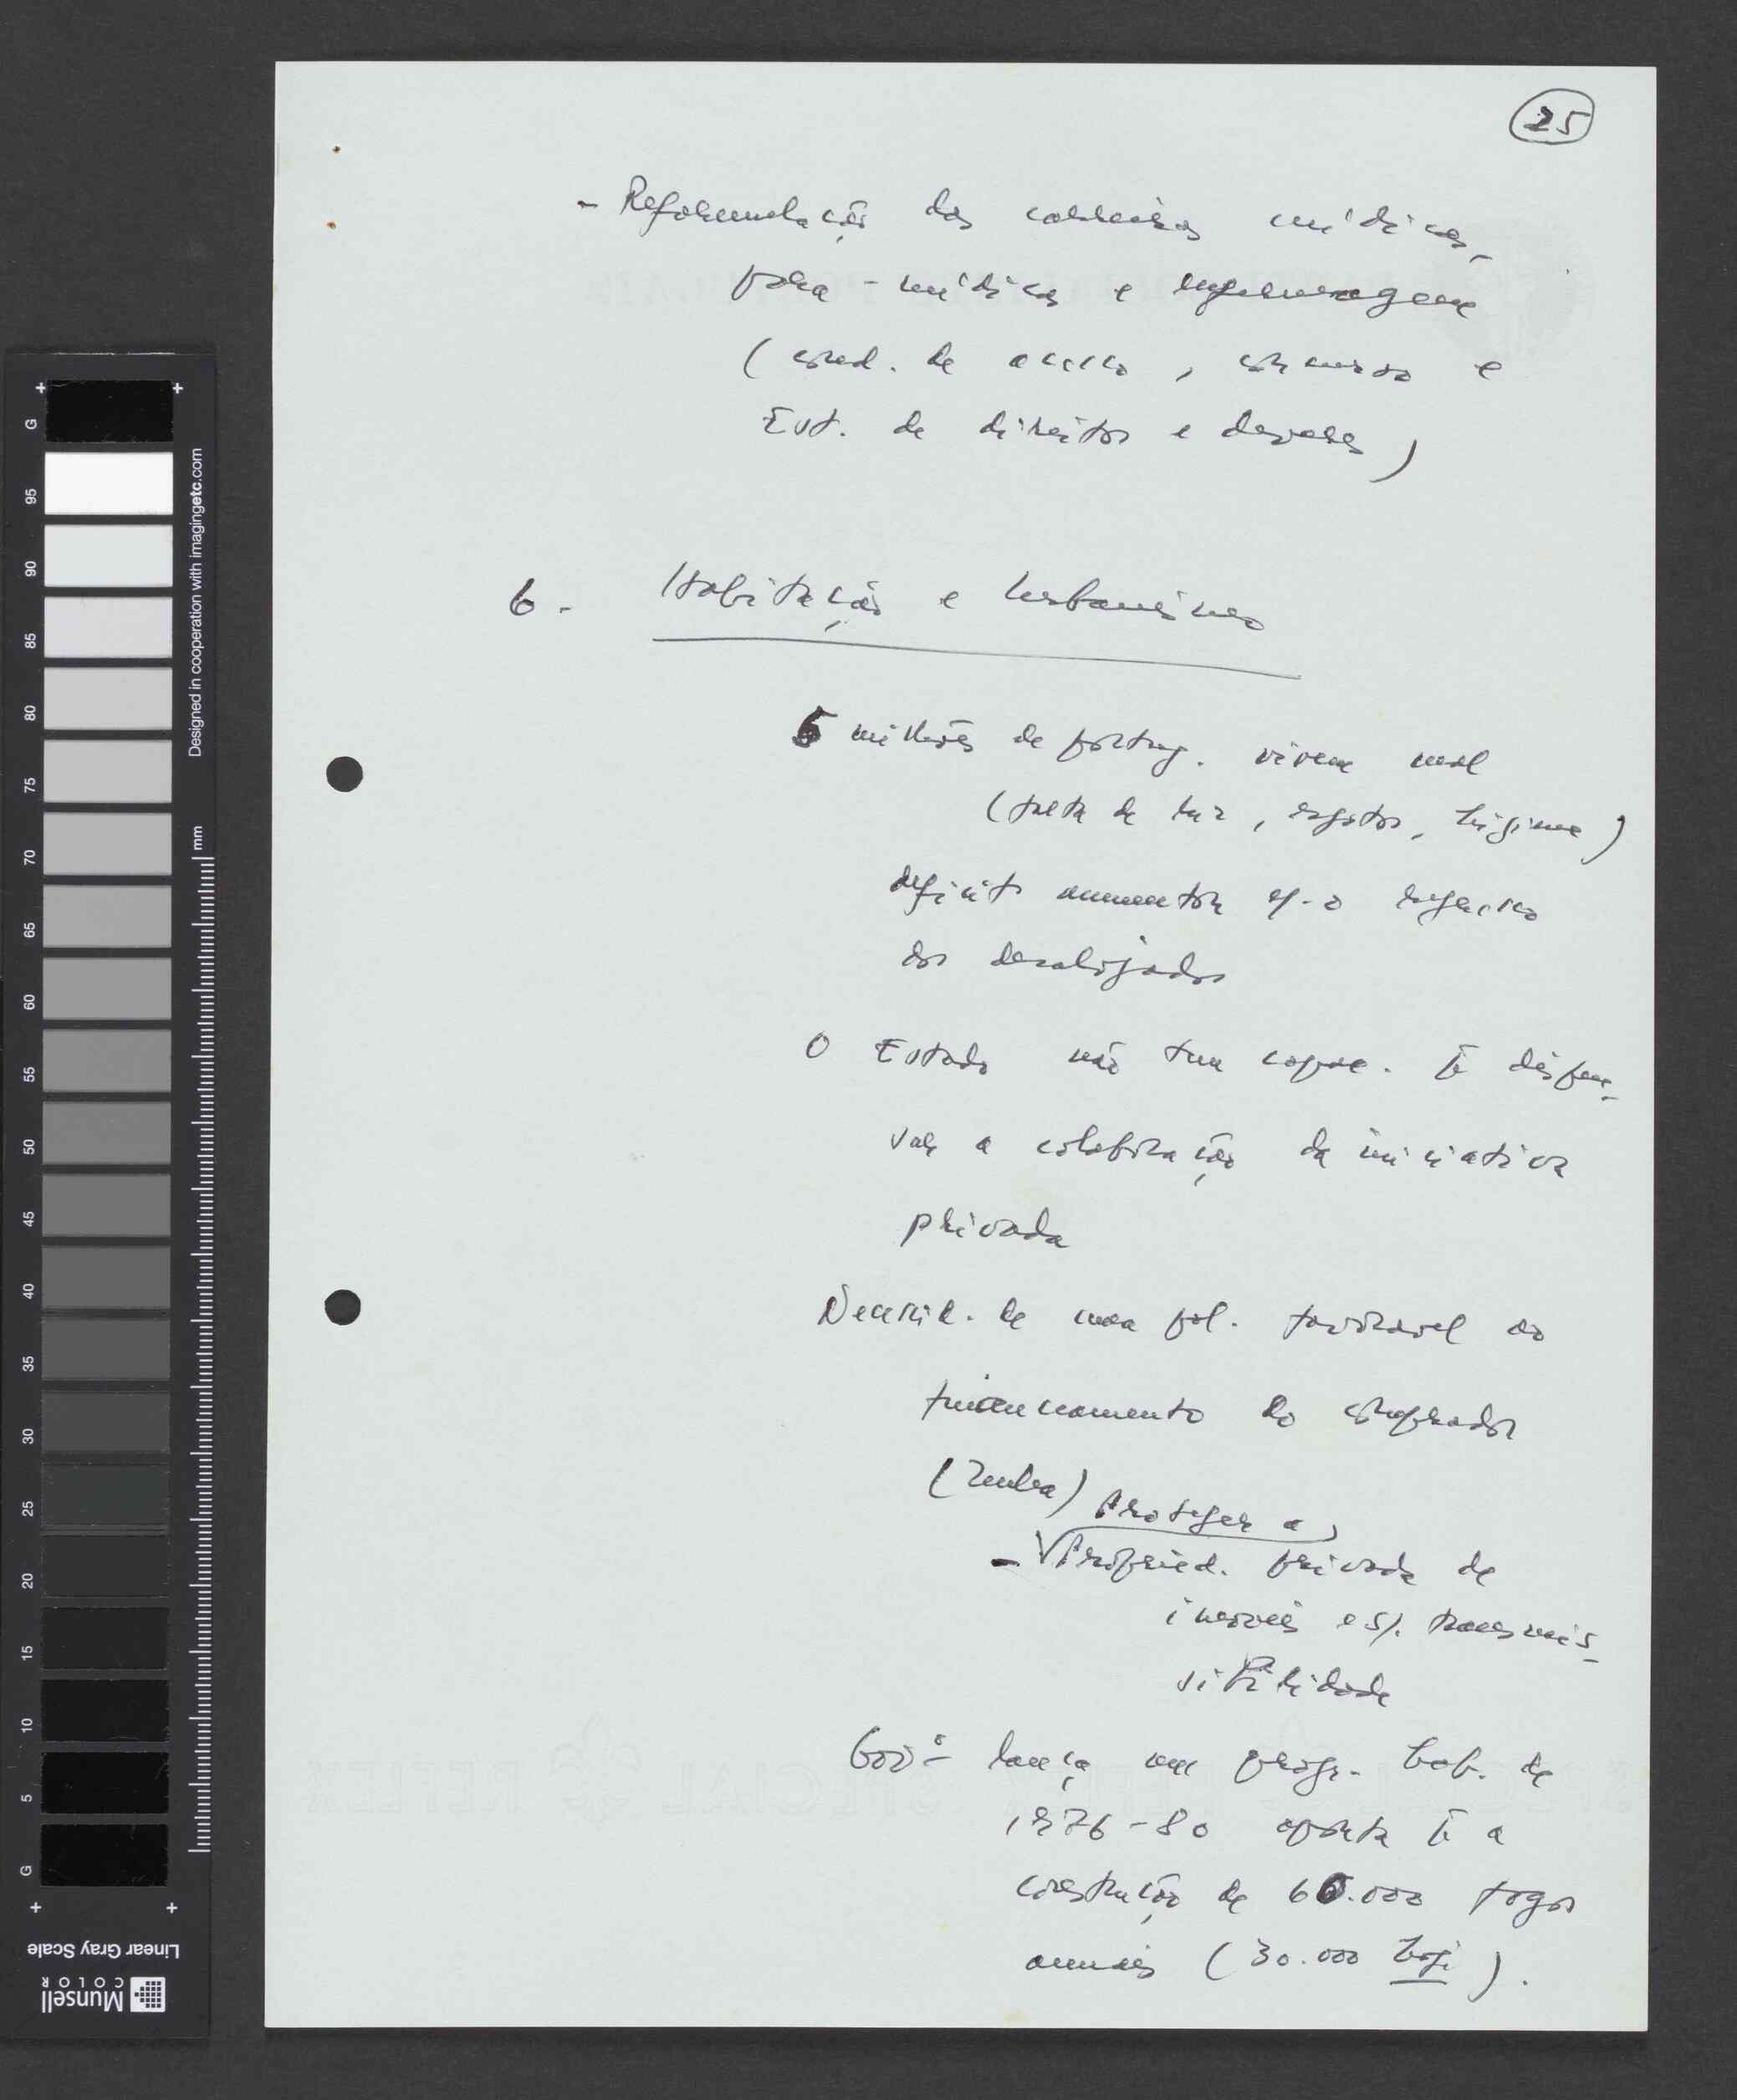 25
- Reformulação das carreiras médicas,
para-médicas e enfermagem
(cond. de acesso, concurso e
Est. de direitos e deveres)
6. Habitação e Urbanismo
5 milhões de portug. vivem mal
(falta de luz, esgotos, higiene)
deficit aumentou c/ o regresso
dos desalojados
O Estado não tem capac. p/ dispen-
sar a colaboração da iniciativa
privada
Necessid. de uma pol. favorável ao
financiamento do comprador
(renda)
proteger a
- propried. privada de
imóveis e s/. transmis-
sibilidade
Govº lança um progr. hab. de
1976-80 aponta p/ a
construção de 60.000 fogos
anuais (30.000 hoje).
G 95 90 85 80 75 70 65 60 55 50 45 40 35 30 25 20 15 10 5 G
mm
Designed in cooperation with imagingetc.com
Linear Gray Scale
Munsell
COLOR